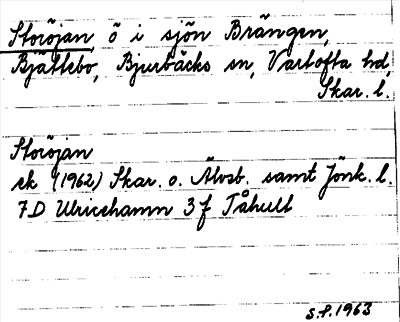 Storöjan, ö i sjön Brängen,
Bjättebo, Bjurbäcks sn, Vartofta hd,
Skar. l.
Storöjan
ek (1962) Skar. o. Älvsb. samt Jönk. l.
7D Ulricehamn 3f Tåhult
S.P. 1963